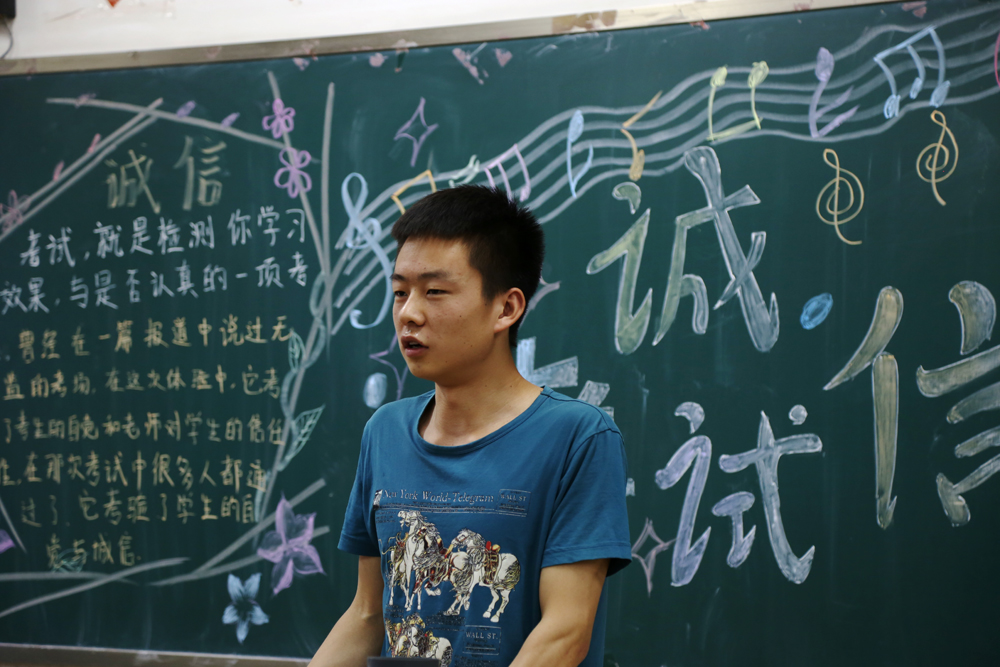 诚信
考试,就是检测你学习
效果,与是否认真的一项考
曾经在一篇报道中说过无
监的考场,在这次体验中,它考
了考生的自觉和老师对学生的信任
在那次考试中很多人都通
过了,它考验了学生的自
觉与诚信.
诚信
考试
New York World-Telegram
WALL ST.
WALL ST.